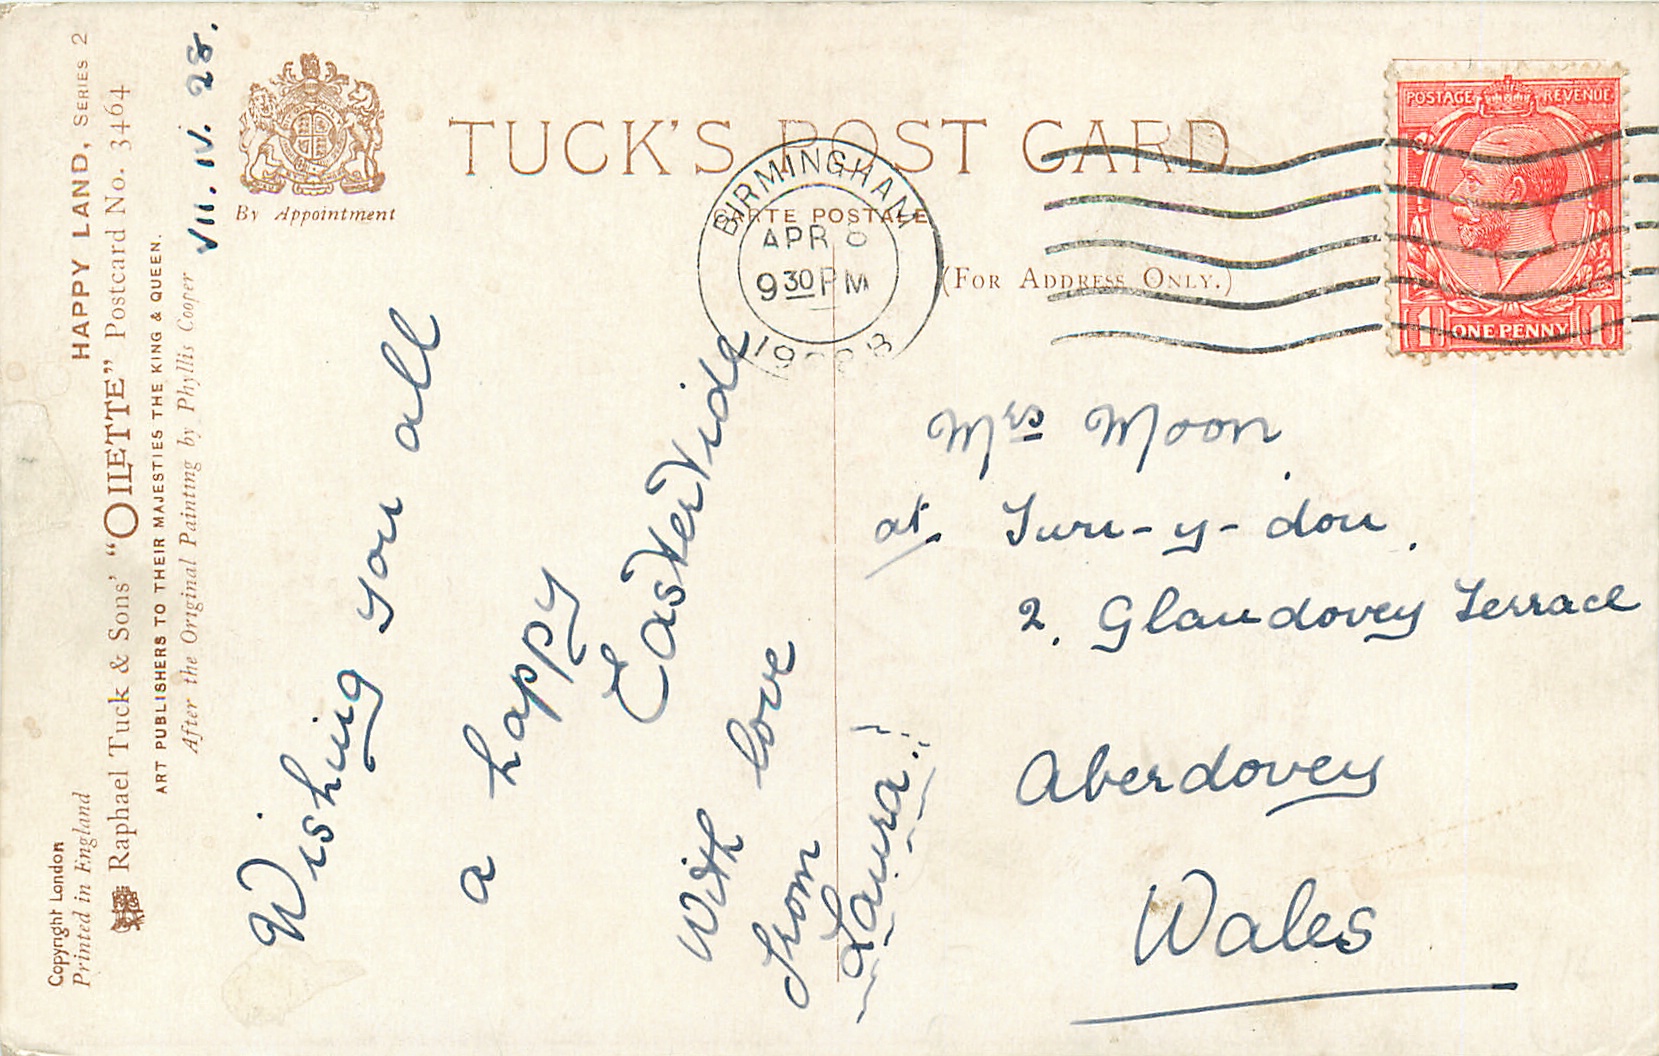 TUCK'S POST CARD
CARTE POSTALE
(FOR ADDRESS ONLY.)
By Appointment
BIRMINGHAM
APR 8
9 30 PM
POSTAGE REVENUE
1 ONE PENNY 1
HAPPY LAND, SERIES 2
Raphael Tuck & Sons' "OILETTE" Postcard No. 3464
ART PUBLISHERS TO THEIR MAJESTIES THE KING & QUEEN.
After the Original Painting by Phyllis Cooper
Copyright London
Printed in England
VII. IV. 28.
Wishing you all
a happy
Eastertide
With love
from
Laura.
Mrs Moon
at
2. Glandovey Terrace
Aberdovey
Wales